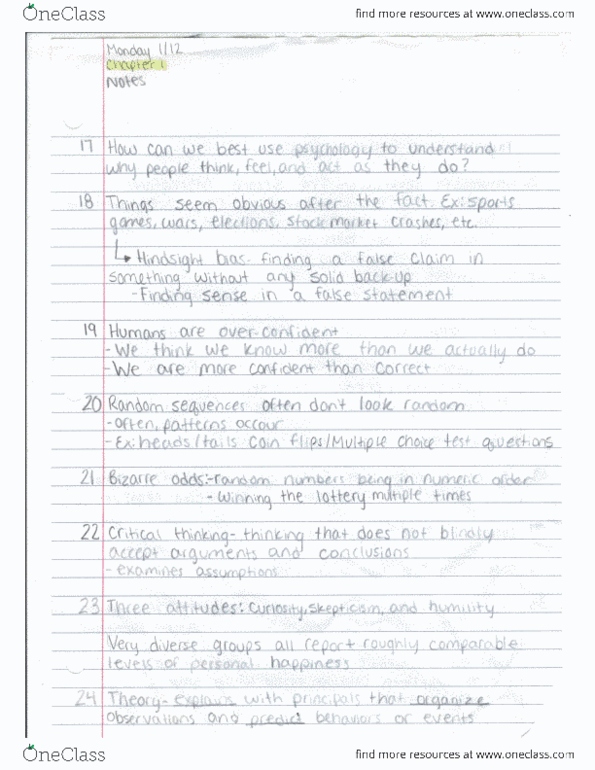 OneClass find more resources at www.oneclass.com
Monday 1/12
Chapter 1
Notes
17 How can we best use psychology to understand
why people think, feel, and act as they do?
18 Things seem obvious after the fact. Ex: sports
games, wars, elections, stock market crashes, etc.
↳ Hindsight bias- finding a false claim in
something without any solid back-up
- Finding sense in a false statement
19 Humans are over-confident
- We think we know more than we actually do
- We are more confident than correct
20 Random sequences often don't look random
- often, patterns accour
- Ex: heads/tails coin flips/Multiple choice test questions
21 Bizarre odds:- random numbers being in numeric order
- Winning the lottery multiple times
22 Critical thinking- thinking that does not blindly
accept arguments and conclusions
- examines assumptions
23 Three attitudes: Curiosity, skepticism, and humility
Very diverse groups all report roughly comparable
levels of personal happiness
24 Theory- explains with principals that organize
observations and predict behaviors or events
OneClass find more resources at www.oneclass.com